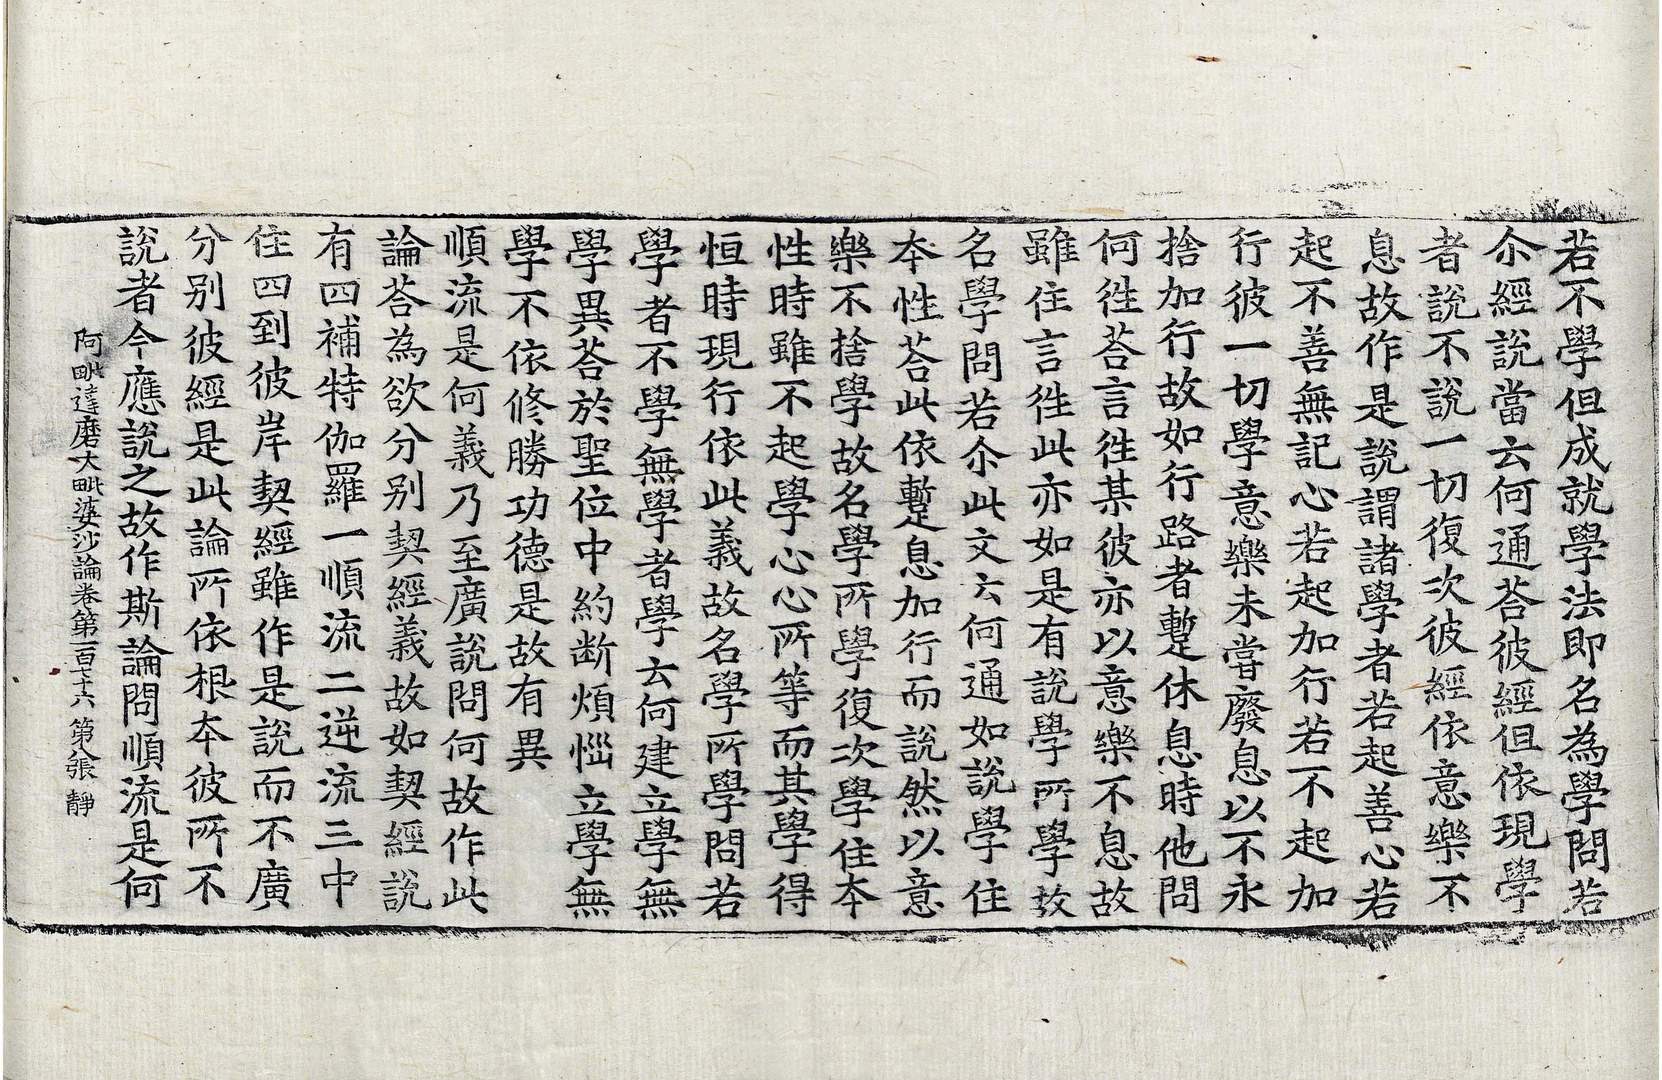 若不學但成就學法即名為學問若
尒經說當云何通荅彼經但依現學
者說不說一切復次彼經依意樂不
息故作是說謂諸學者若起善心若
起不善無記心若起加行若不起加
行彼一切學意樂未嘗廢息以不永
捨加行故如行路者蹔休息時他問
何徃荅言徃某彼亦以意樂不息故
雖住言徃此亦如是有說學所學故
名學問若尒此文云何通如說學住
本性荅此依蹔息加行而說然以意
樂不捨學故名學所學復次學住本
性時雖不起學心心所等而其學得
恒時現行依此義故名學所學問若
學者不學無學者學云何建立學無
學異荅於聖位中約断煩惱立學無
學不依修勝功德是故有異
順流是何義乃至廣說問何故作此
論荅為欲分別契經義故如契經說
有四補特伽羅一順流二逆流三中
住四到彼岸契經雖作是說而不廣
分別彼經是此論所依根本彼所不
說者今應說之故作斯論問順流是何
阿毗達磨大毗婆沙論卷第一百七十六 第八張 靜